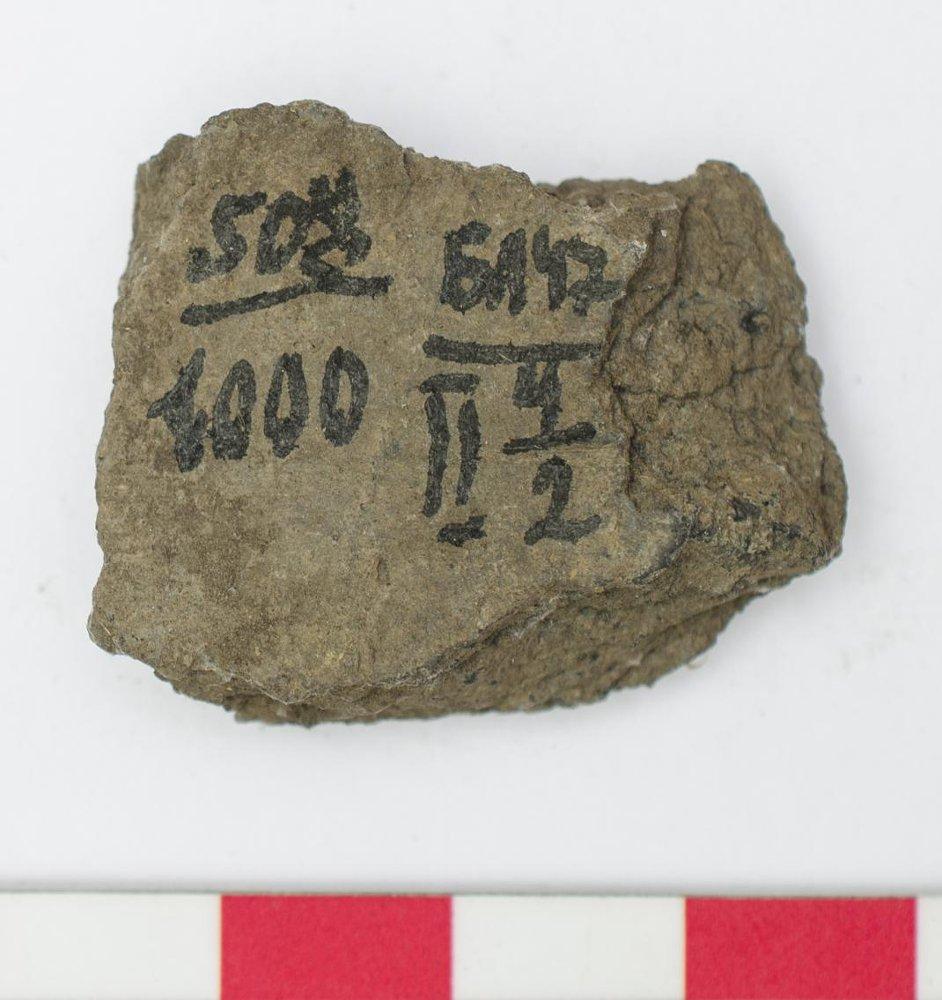 50
1000
БЛ47
II 4
2